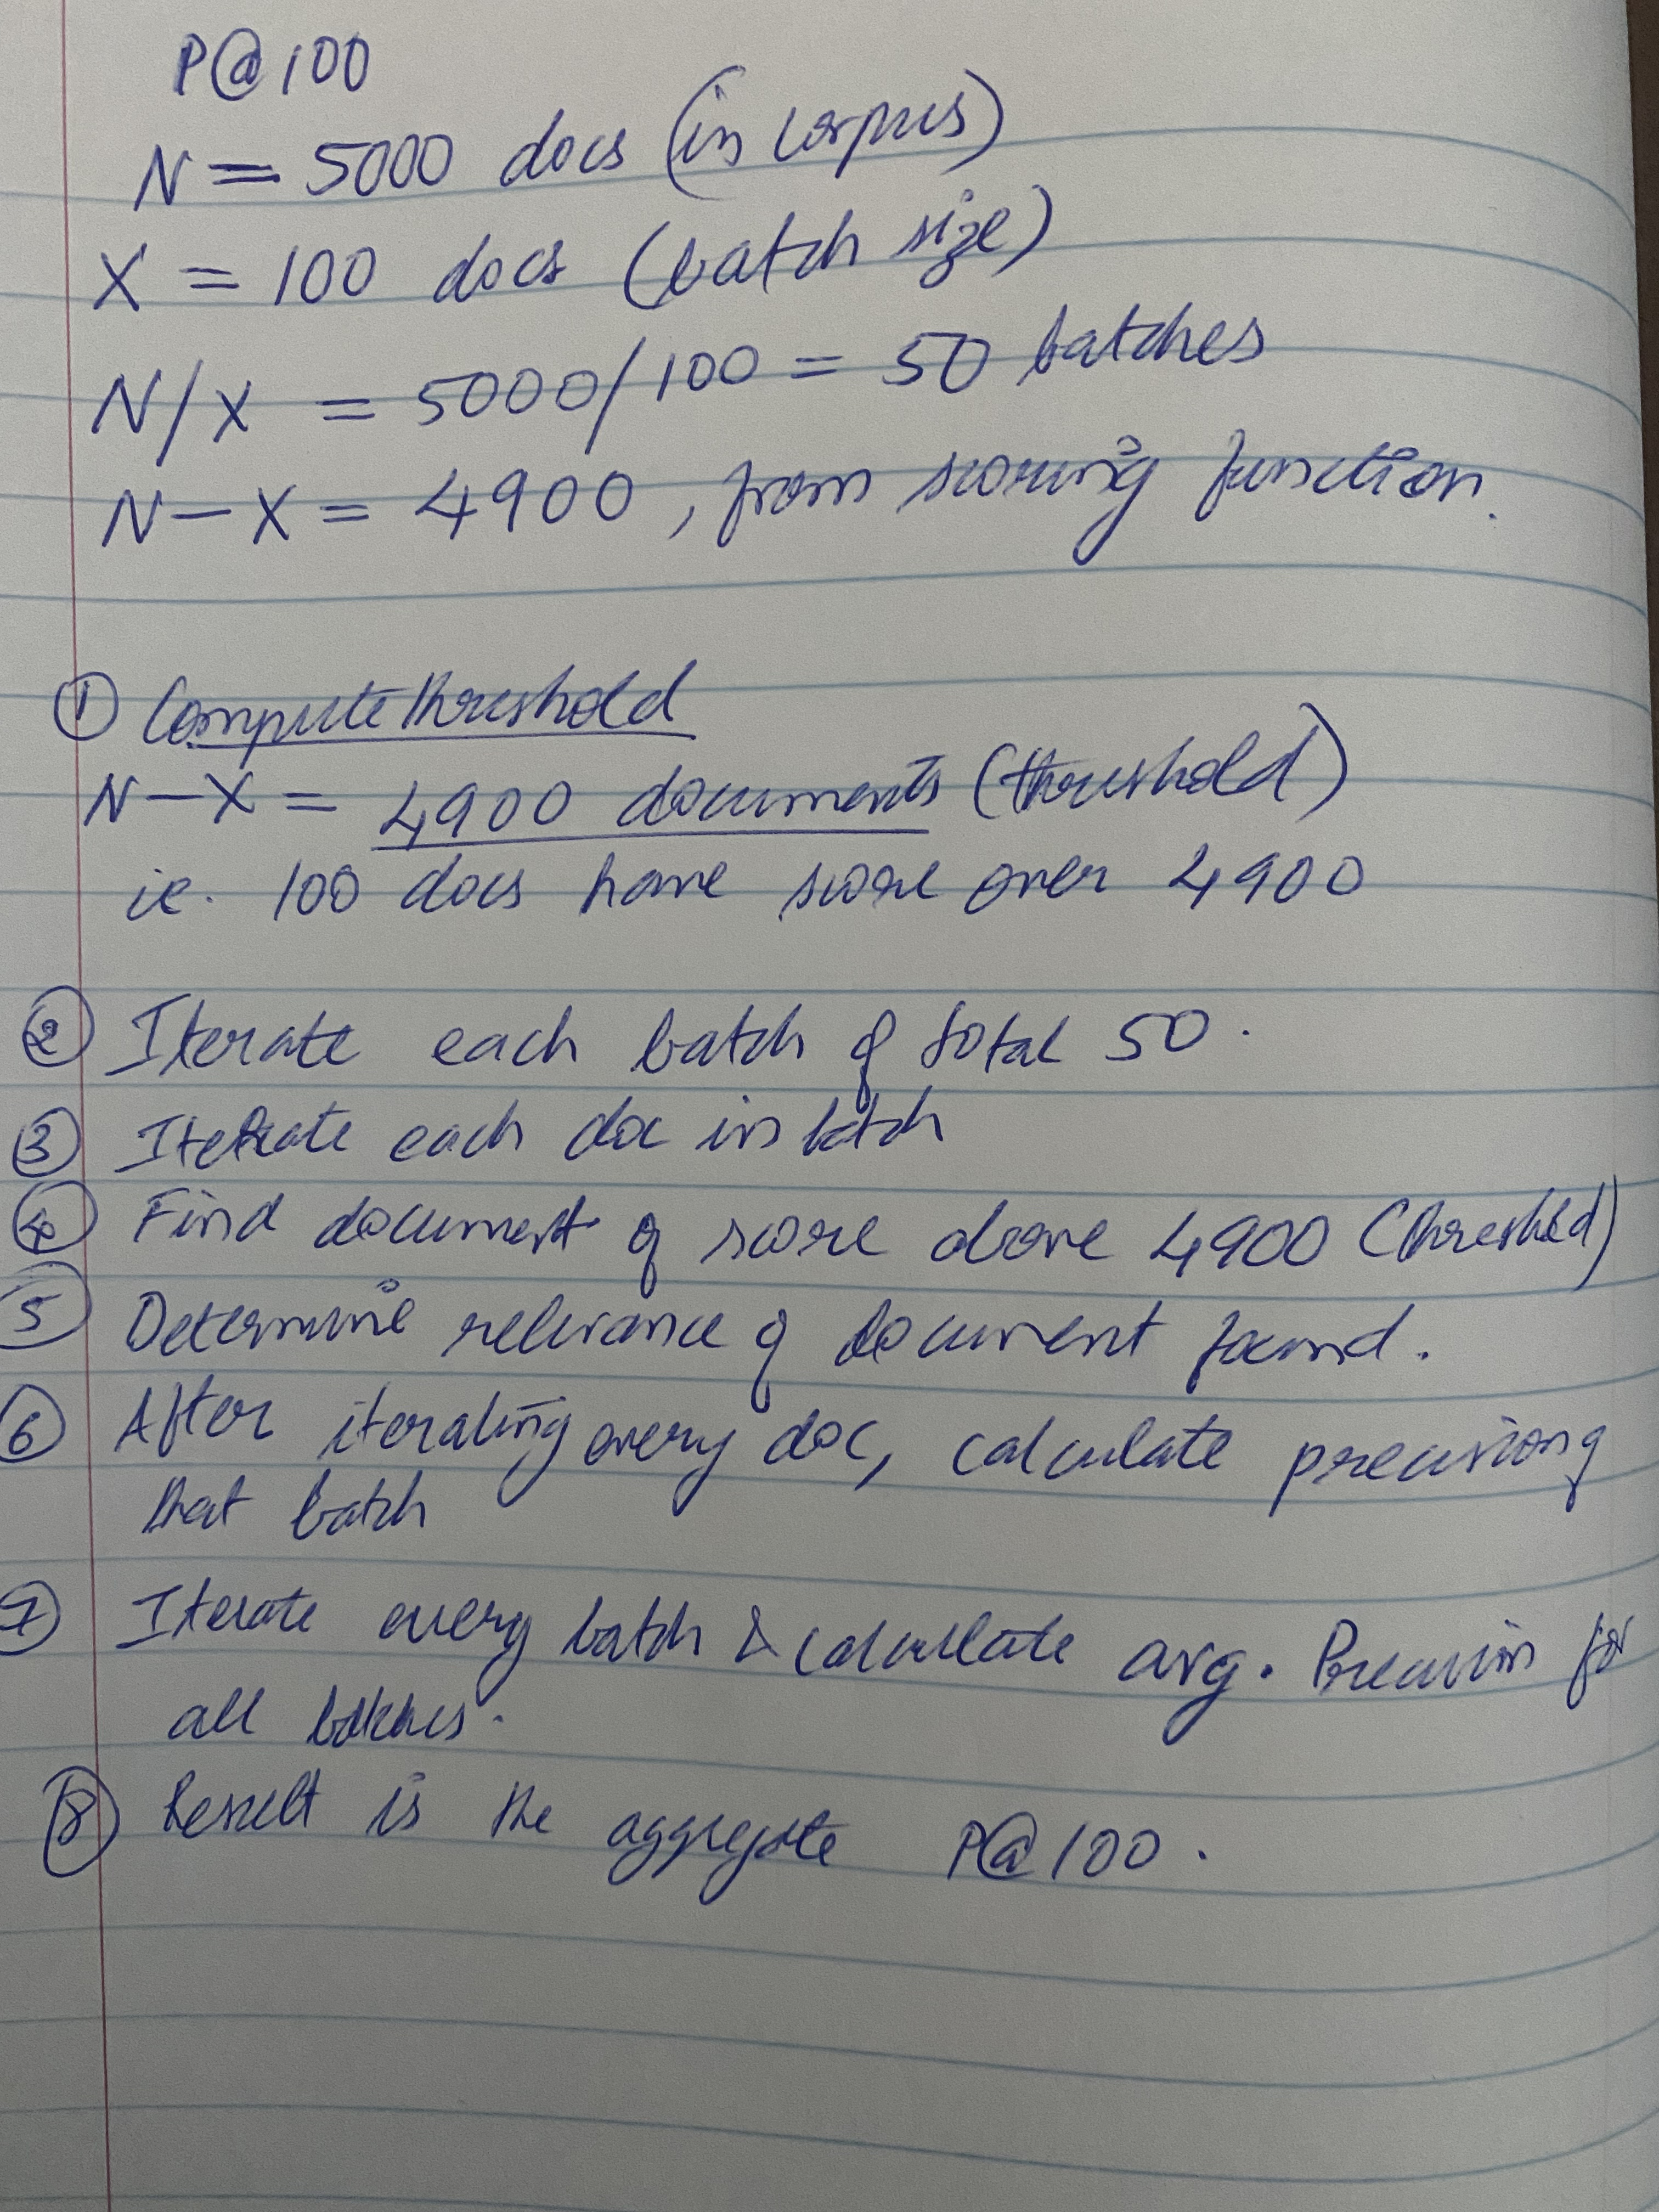 P@100
N = 5000 docs (in corpus)
X = 100 docs (batch size)
N/X = 5000/100 = 50 batches
N-X = 4900, from scoring function.
① Compute threshold
N-X = 4900 documents (threshold)
ie. 100 docs have score over 4900
② Iterate each batch of total 50.
③ Iterate each doc in batch
④ Find document of score above 4900 (threshold)
⑤ Determine relevance of document found.
⑥ After iterating every doc, calculate precision of
that batch
⑦ Iterate every batch & calculate avg. Precision for
all batches.
⑧ Result is the aggregate P@100.